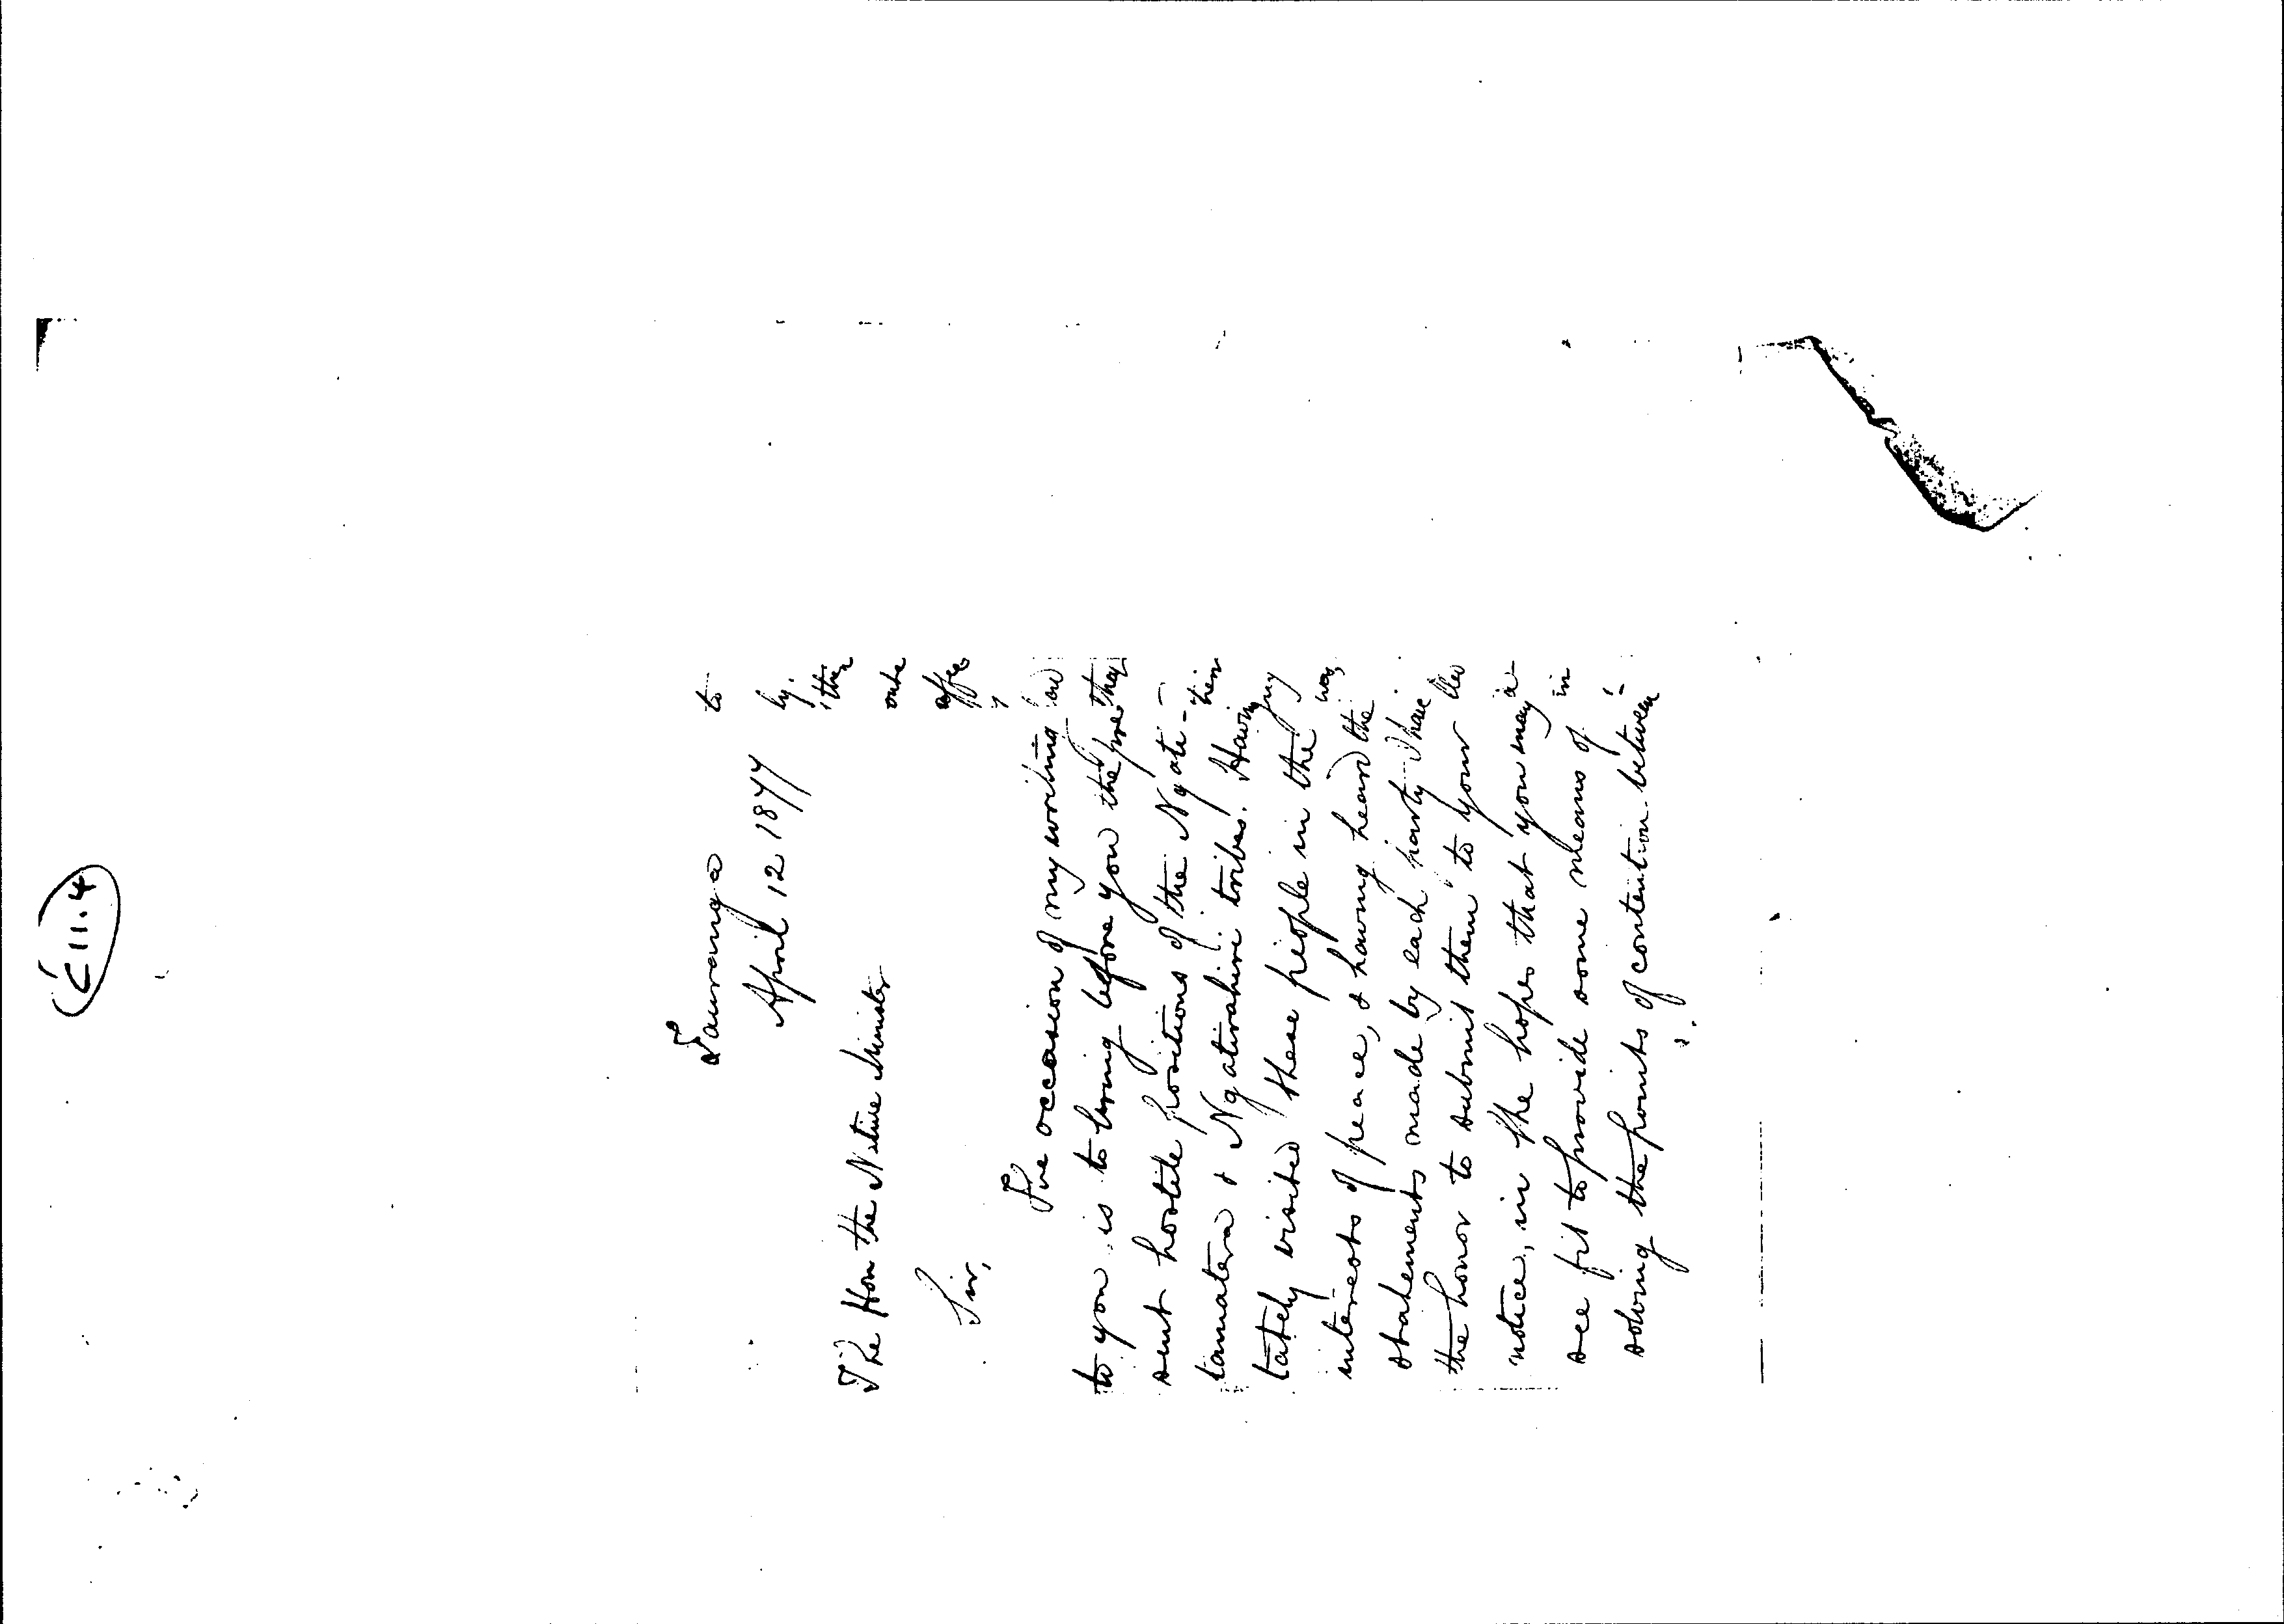 E11.4
Tauranga
April 12 1877
The Hon the Native Minister
Sir,
The occasion of my writing
to you is to bring before you the pre
sent hostile positions of the Ngati-
tamatera & Ngatirahiri tribes. Having
lately visited these people in the
interests of peace, & having heard the
statements made by each party I have
the honor to submit them to your
notice, in the hopes that you may
see fit to provide some means of
solving the points of contention between
to
ly.
in